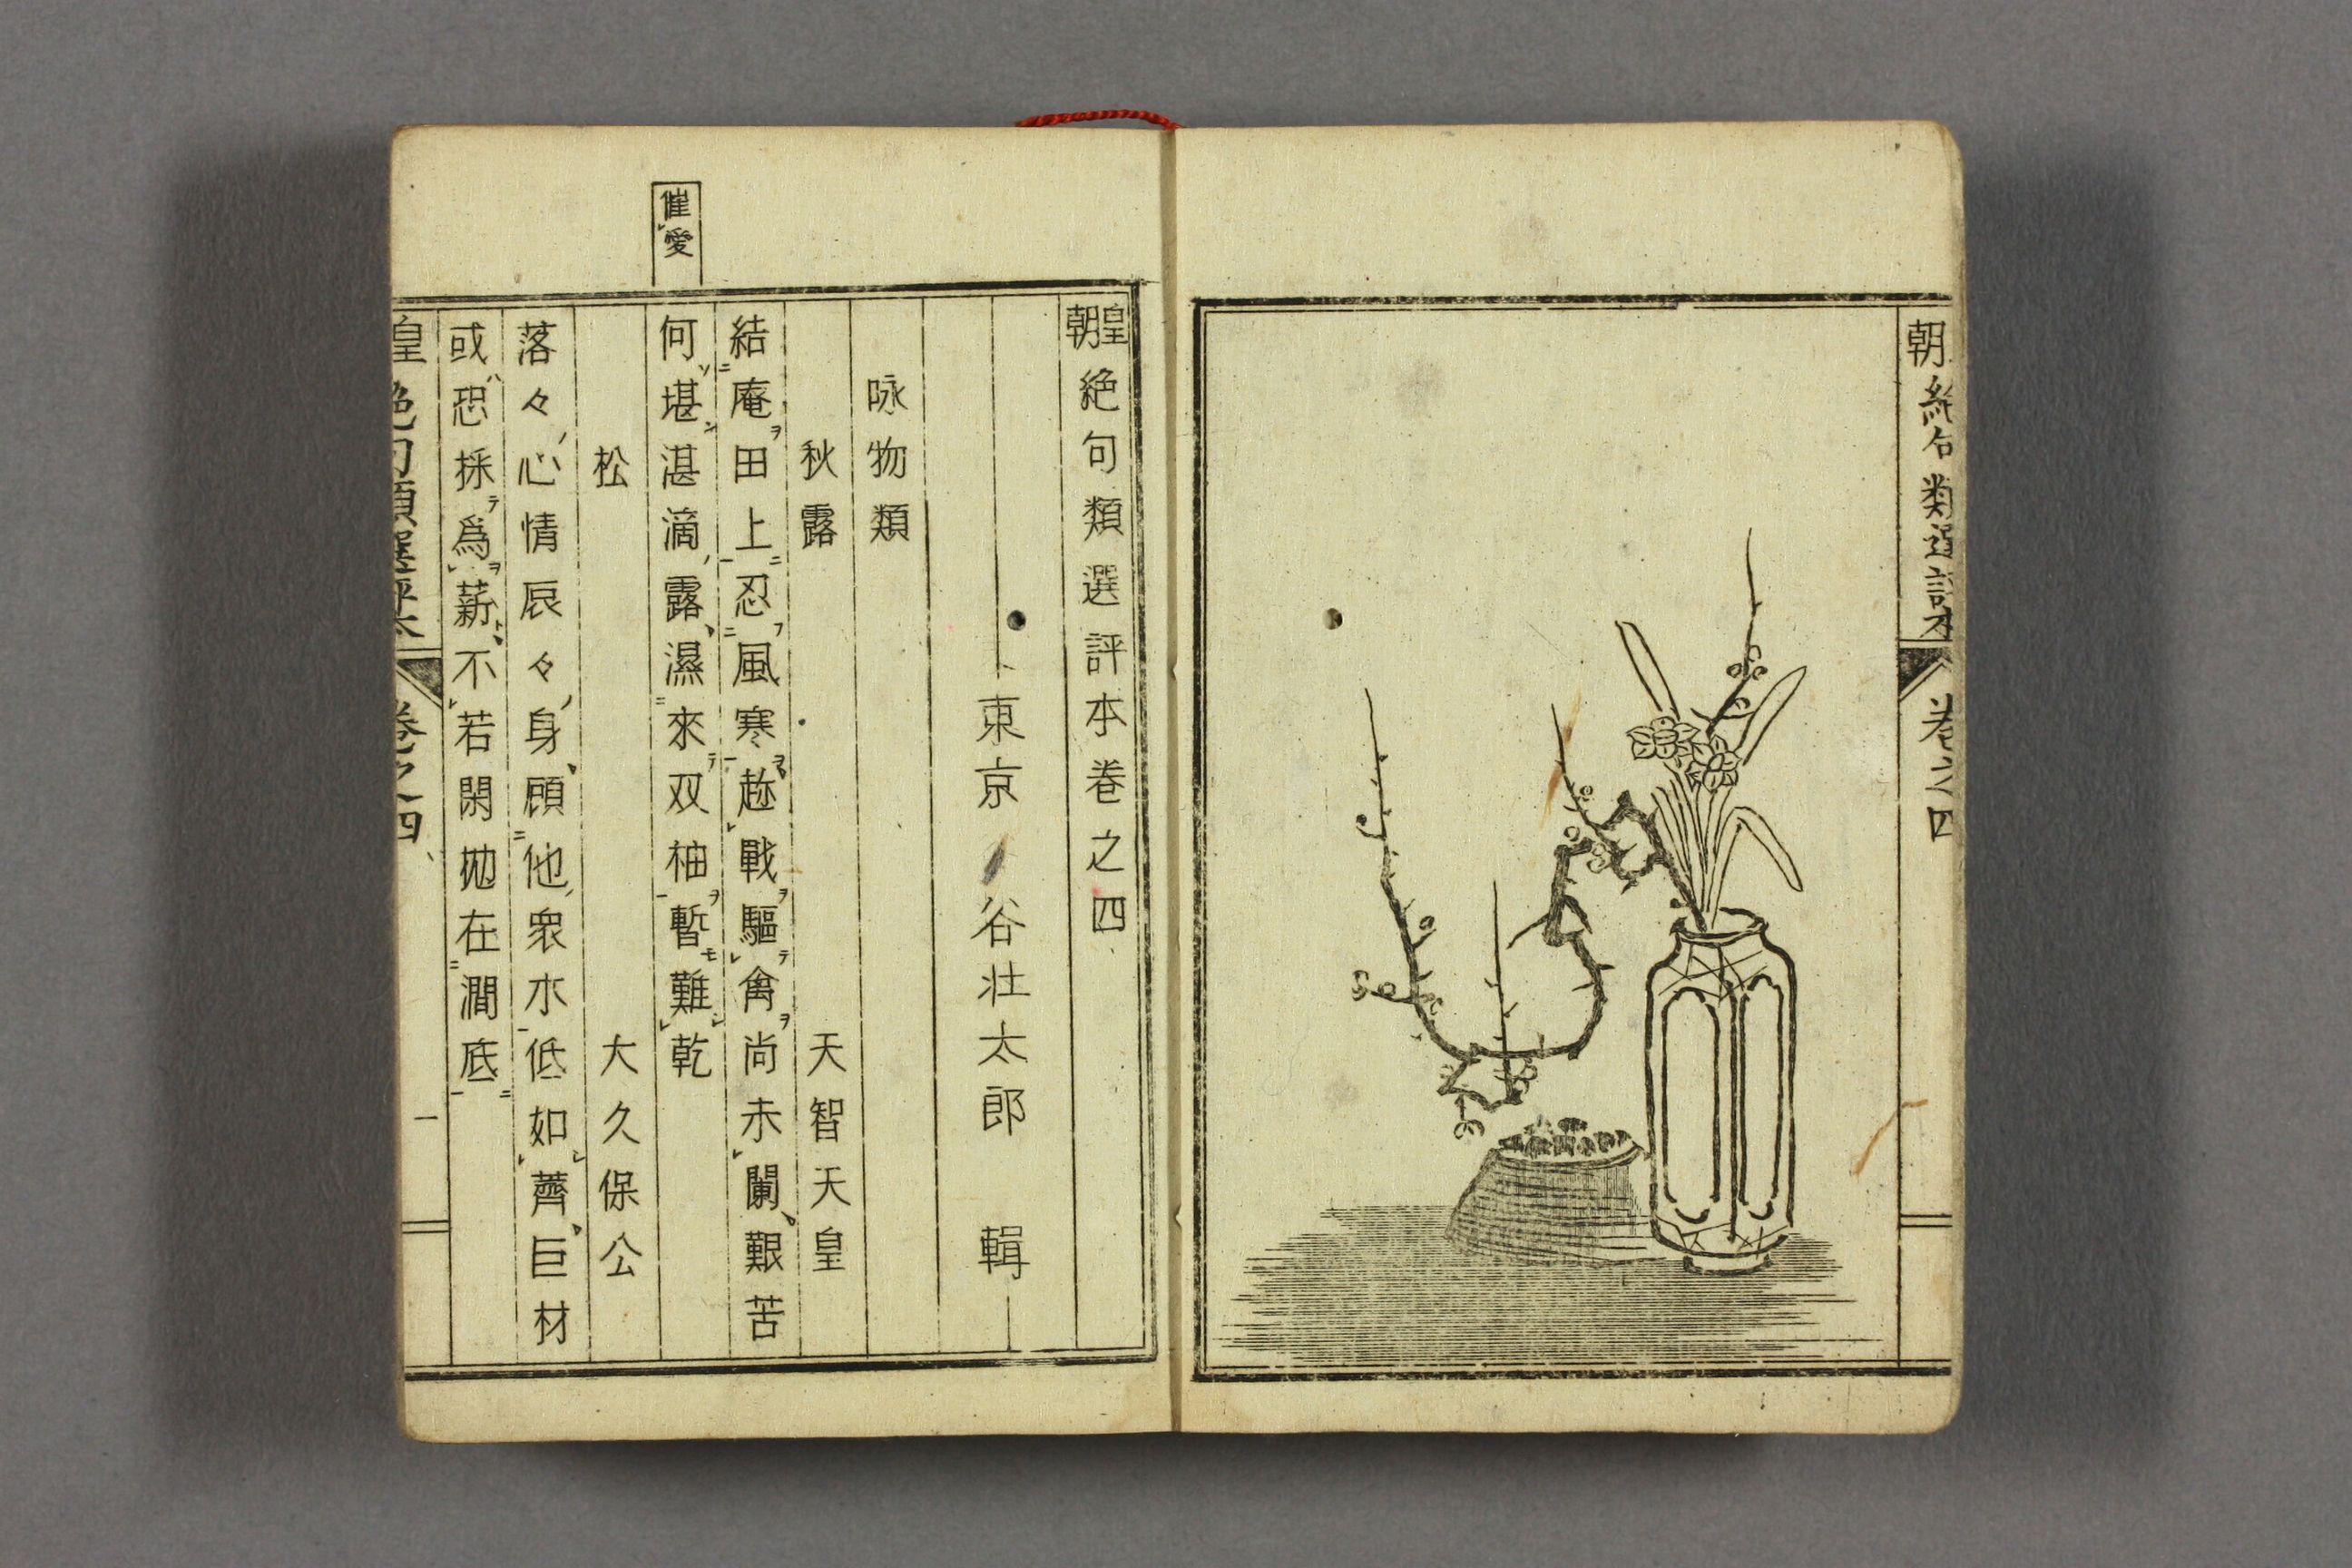 朝絶句類選評本 卷之四
皇朝絶句類選評本卷之四
東京 谷壮太郎 輯
咏物類
秋露 天智天皇
結庵田上忍風寒趂戰驅禽尚未闌艱苦
何堪湛滴露濕來双柚暫難乾
催愛
松 大久保公
落々心情辰々身顧他衆木低如薺巨材
或恐採爲薪不若閑抛在澗底
皇 絶句類選評本 卷之四 一